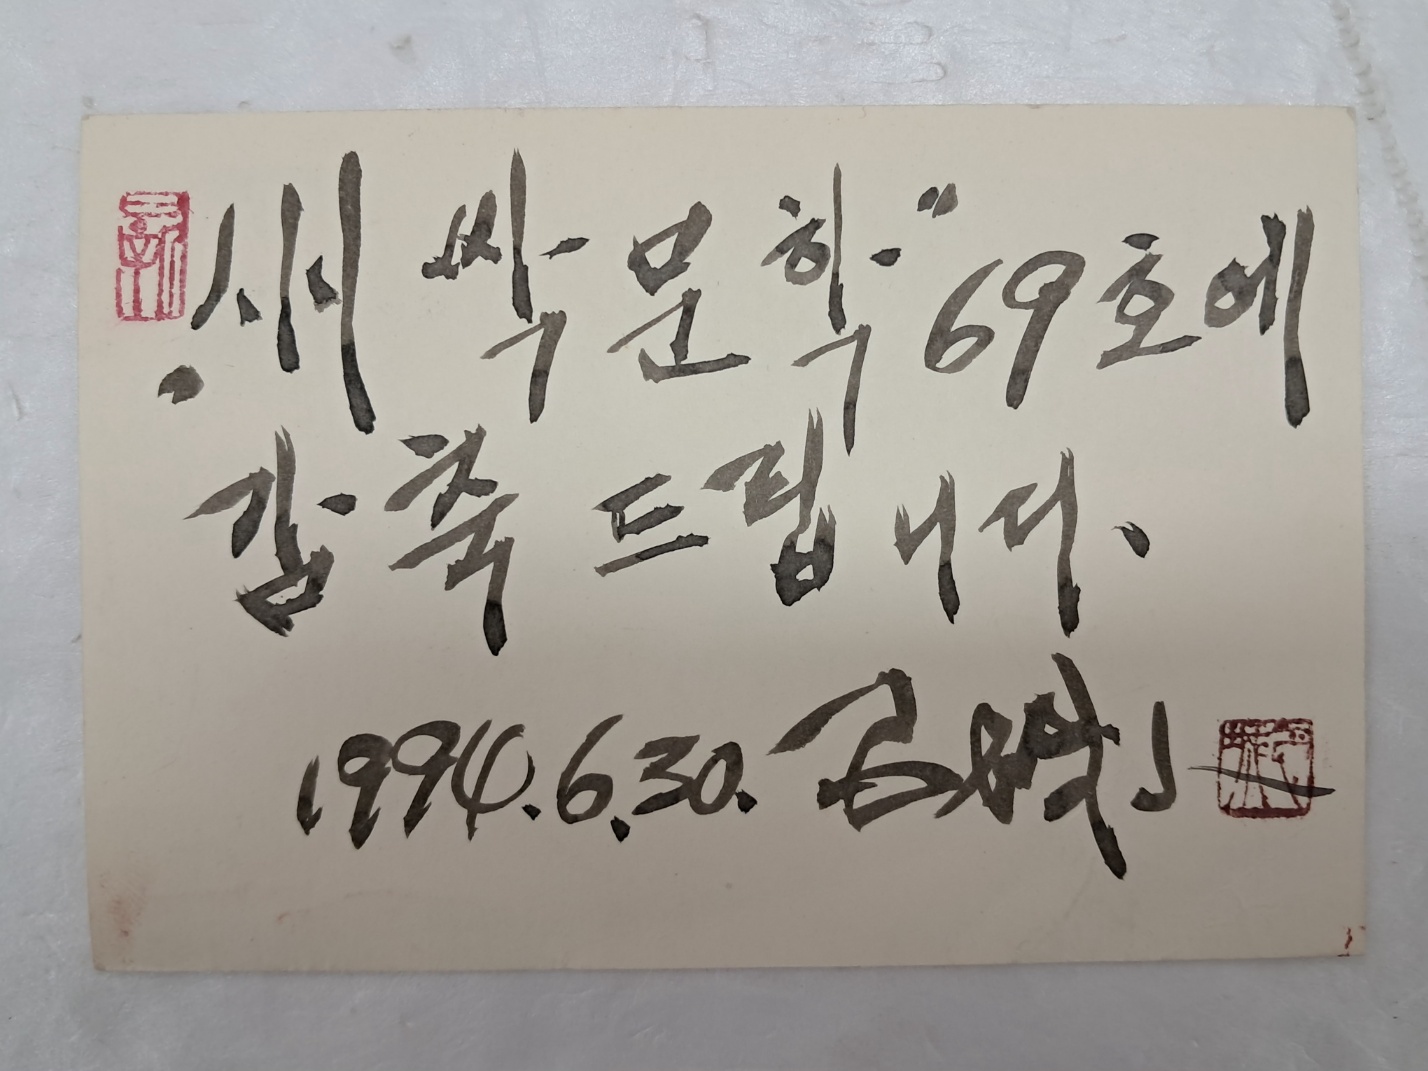 새싹문학" 69호에
감축 드립니다.
1994.6.30.